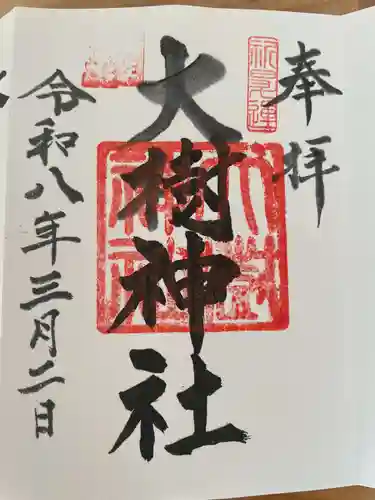 奉拝
大樹神社
令和八年三月二日